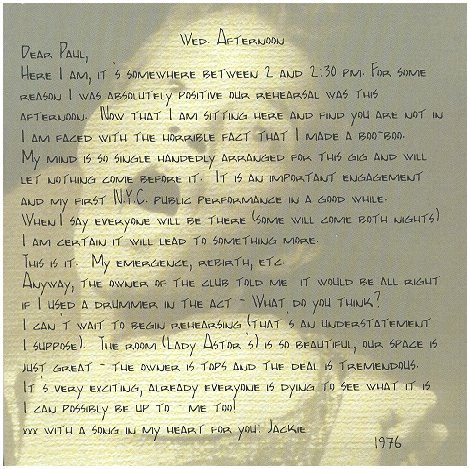 Wed. Afternoon
Dear Paul,
Here I am, it's somewhere between 2 and 2:30 pm. For some
reason I was absolutely positive our rehearsal was this
afternoon. Now that I am sitting here and find you are not in
I am faced with the horrible fact that I made a boo-boo.
My mind is so single handedly arranged for this gig and will
let nothing come before it. It is an important engagement
and my first N.Y.C. public performance in a good while.
When I say everyone will be there (some will come both nights)
I am certain it will lead to something more.
This is it. My emergence, rebirth, etc.
Anyway, the owner of the club told me it would be all right
if I used a drummer in the act - What do you think?
I can't wait to begin rehearsing (that's an understatement
I suppose). The room (Lady Astor's) is so beautiful, our space is
just great - the owner is tops and the deal is tremendous.
It's very exciting, already everyone is dying to see what it is
I can possibly be up to - me too!
xxx with a song in my heart for you: Jackie
1976